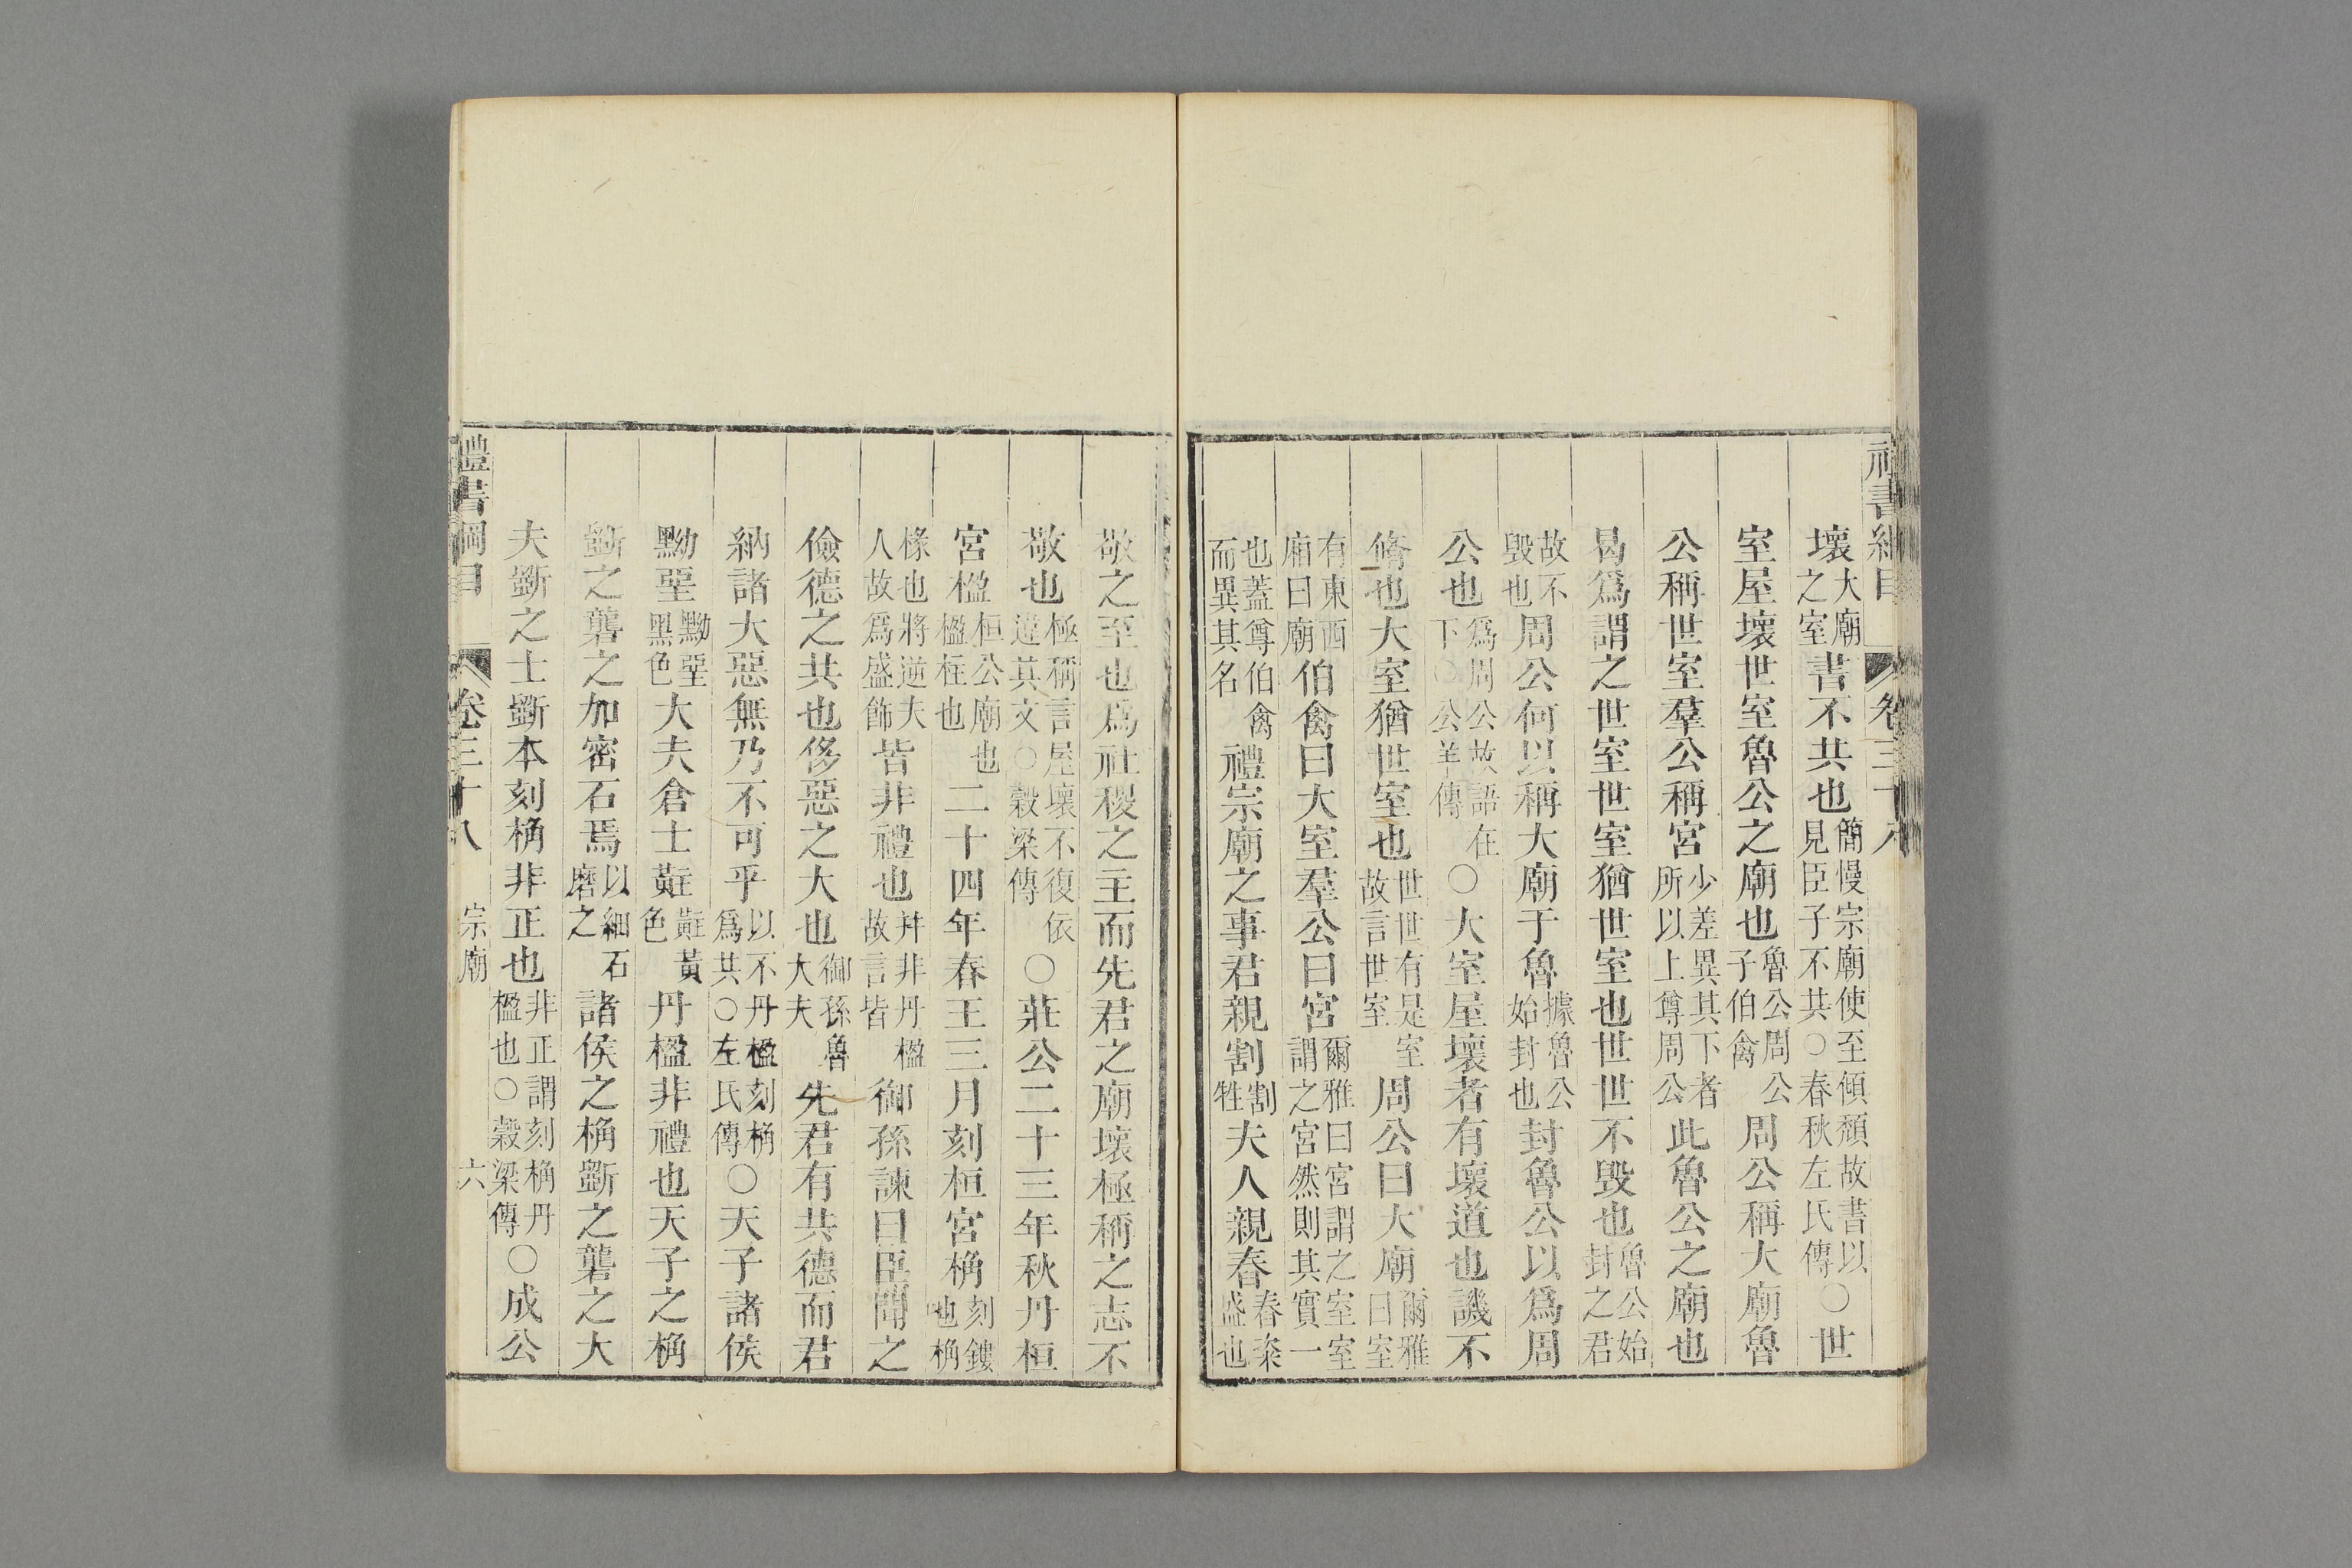 禮書綱目 卷三十八
壞大廟之室書不共也簡慢宗廟使至傾頹故書以見臣子不共○春秋左氏傳○世
室屋壞世室魯公之廟也魯公周公子伯禽周公稱大廟魯
公稱世室羣公稱宮少差異其下者所以上尊周公此魯公之廟也
曷爲謂之世室世室猶世室也世世不毀也魯公始封之君
故不毀也周公何以稱大廟于魯據魯公始封也封魯公以爲周
公也爲周公故語在下○公羊傳○大室屋壞者有壞道也譏不
脩也大室猶世室也世世有是室故言世室周公曰大廟爾雅曰室
有東西廂曰廟伯禽曰大室羣公曰宮爾雅曰宮謂之室室謂之宮然則其實一
也蓋尊伯禽而異其名禮宗廟之事君親割割牲夫人親舂舂粢盛也
敬之至也爲社稷之主而先君之廟壞極稱之志不
敬也極稱言屋壞不復依違其文○穀梁傳○莊公二十三年秋丹桓
宮楹桓公廟也楹柱也二十四年春王三月刻桓宮桷刻鏤也桷
椽也將逆夫人故爲盛飾皆非禮也幷非丹楹故言皆御孫諫曰臣聞之
儉德之共也侈惡之大也御孫魯大夫先君有共德而君
納諸大惡無乃不可乎以不丹楹刻桷爲共○左氏傳○天子諸侯
黝堊黝堊黑色大夫倉士黈黈黃色丹楹非禮也天子之桷
斲之礱之加密石焉以細石磨之諸侯之桷斲之礱之大
夫斲之士斲本刻桷非正也非正謂刻桷丹楹也○穀梁傳○成公
禮書綱目 卷三十八 宗廟 六